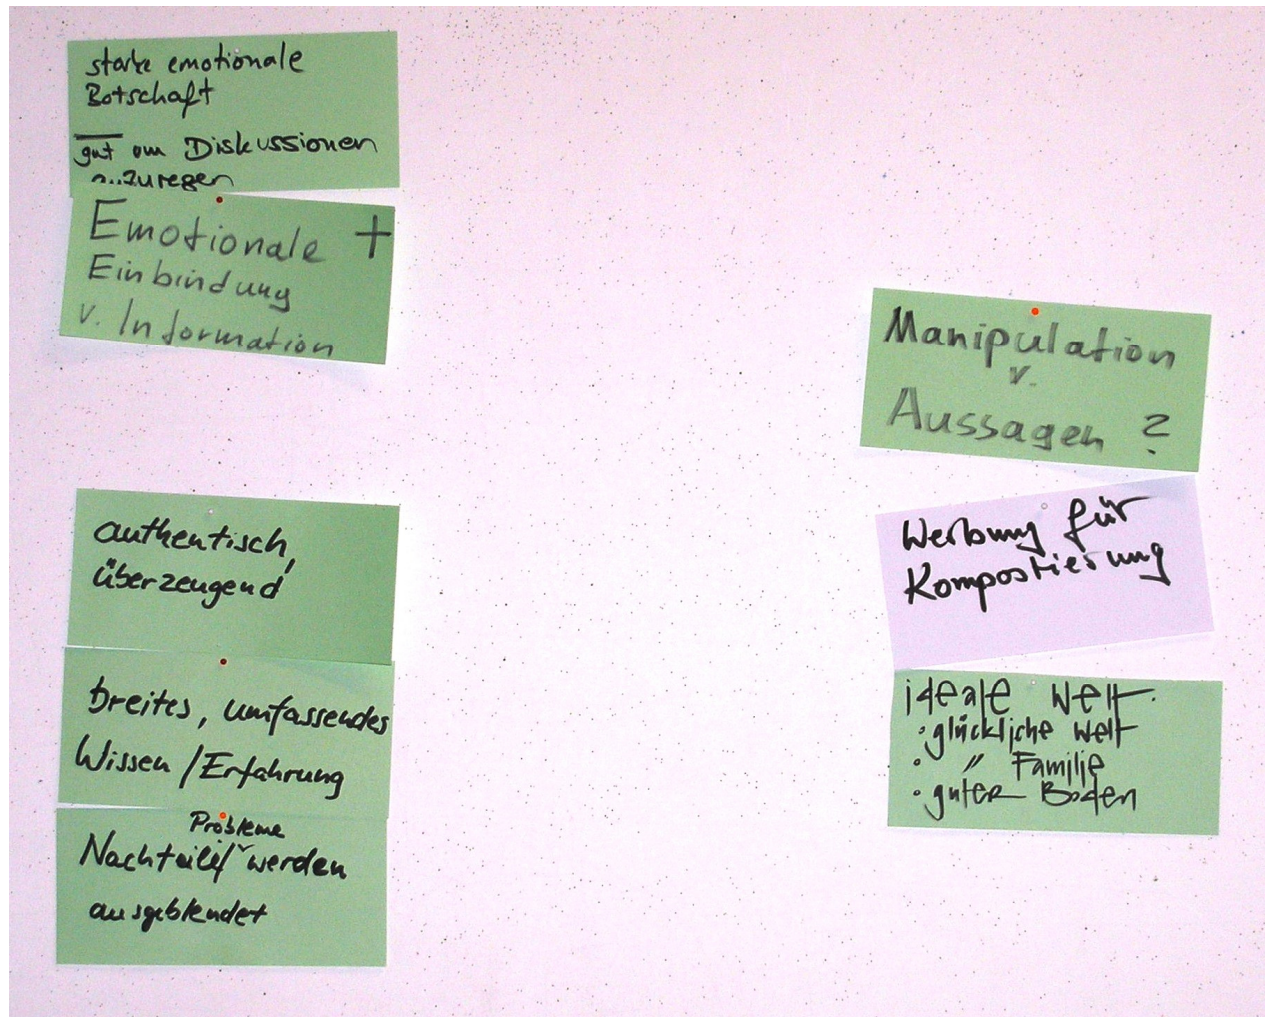 starke emotionale
Botschaft
gut um Diskussionen
anzuregen
Emotionale +
Einbindung
v. Information
authentisch,
überzeugend
breites, umfassendes
Wissen / Erfahrung
Probleme
Nachteile / werden
ausgeblendet
Manipulation
v.
Aussagen ?
Werbung für
Kompostierung
ideale Welt.
· glückliche Welt
· " Familie
· guter Boden